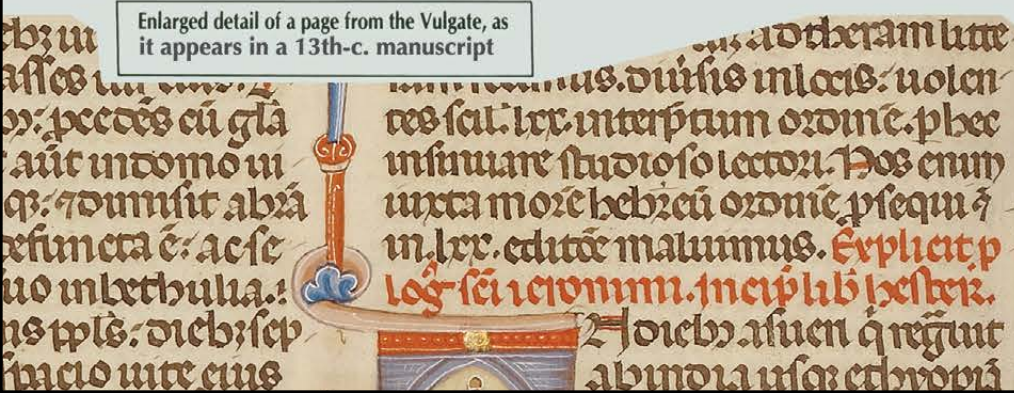 Enlarged detail of a page from the Vulgate, as
it appears in a 13th-c. manuscript
ebꝫ
asses
p̄cedēs cū gl̄a
aūt in domo iu
qꝫ: ⁊ dimisit abrā
defuncta ē: ac se
uo in bethulia.:
is ppl̄s: diebꝫ sep
spacio uite eius
ad theram litte
diuisis in locis: uolen
tes scil. lxx. interp̄tum ordinē. p hec
insinuare studioso lectori. Nos enim
iuxta morē hebreū ordinē p̄sequi
in .lxx. editōe maluimus. Explicit p
log sc̄i ieronimi. Incip̄ lib̄ hester.
N diebꝫ asueri q̄ reg̃uit
ab india usqꝫ ethyopiā